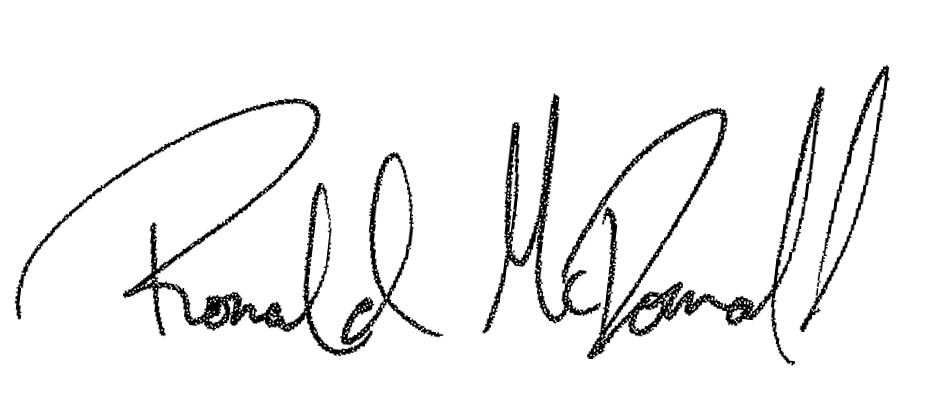 Ronald McDonald